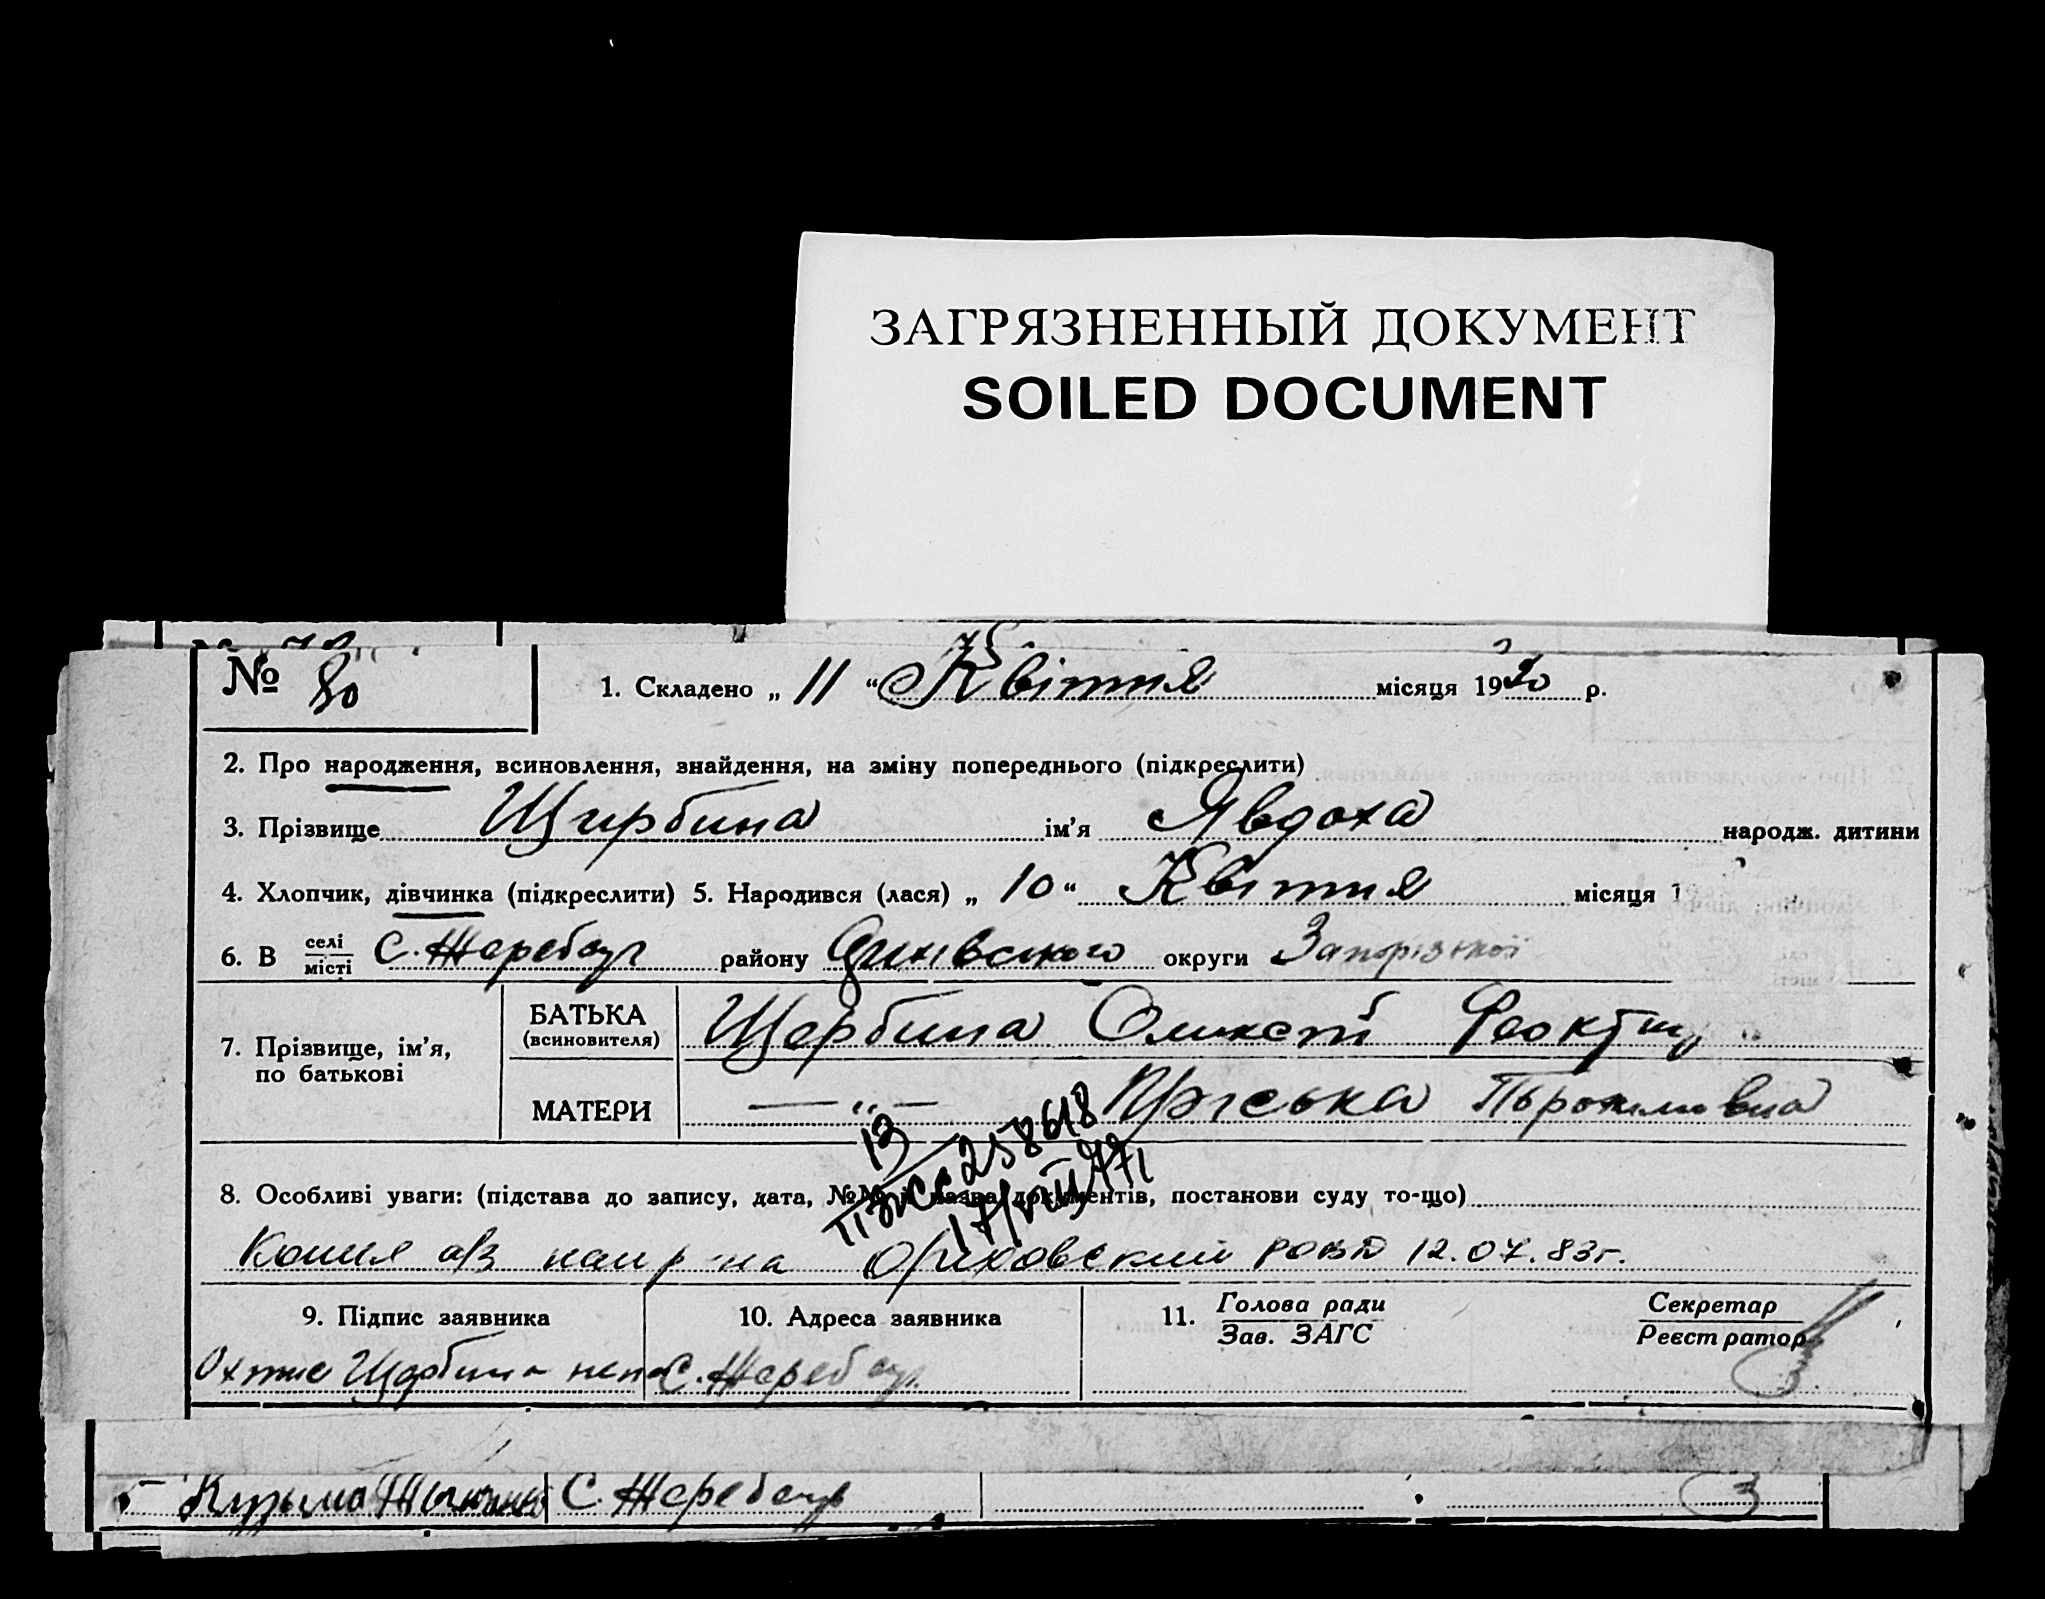 ЗАГРЯЗНЕННЫЙ ДОКУМЕНТ
SOILED DOCUMENT
№ 80
1. Складено „ 11 “ Квітня місяця 19 р.
2. Про народження, всиновлення, знайдення, на зміну попереднього (підкреслити)
3. Прізвище Щирбина ім’я Явдоха народж. дитини
4. Хлопчик, дівчинка (підкреслити) 5. Народився (лася) „ 10 “ Квітня місяця 1
6. В селі/місті С. Жеребец району округи Запорізкої
7. Прізвище, ім’я, по батькові
БАТЬКА (всиновителя) Щербина
МАТЕРИ — „ —
13
258618
17/VIII 77
8. Особливі уваги: (підстава до запису, дата, №№ і назва документів, постанови суду то-що)
Копия а/з напр на Ориховский РОВД 12.07.83г.
9. Підпис заявника
10. Адреса заявника
11. Голова ради
Зав. ЗАГС
Секретар
Реєстратор
Щербина С. Жеребец
Кузьма С. Жеребец